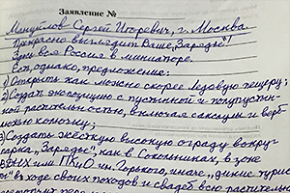 Заявление №
Сергей Игоревич, г. Москва
Прекрасно выглядит Ваше "Зарядье"!
вся Россия в миниатюре.
Есть, однако, предложение:
1) Открыть как можно скорее Ледовую пещеру;
2) Создать экспозицию с пустынной и полупустын-
ной растительностью, включая саксаул и верб-
люжью колючку;
3) Создать жёсткую высокую ограду вокруг
парка "Зарядье", как в Сокольниках, в зоне
ВДНХ или ПКиО им. Горького, иначе "дикие турис-
ты" в ходе своих походов и свадеб всю растит